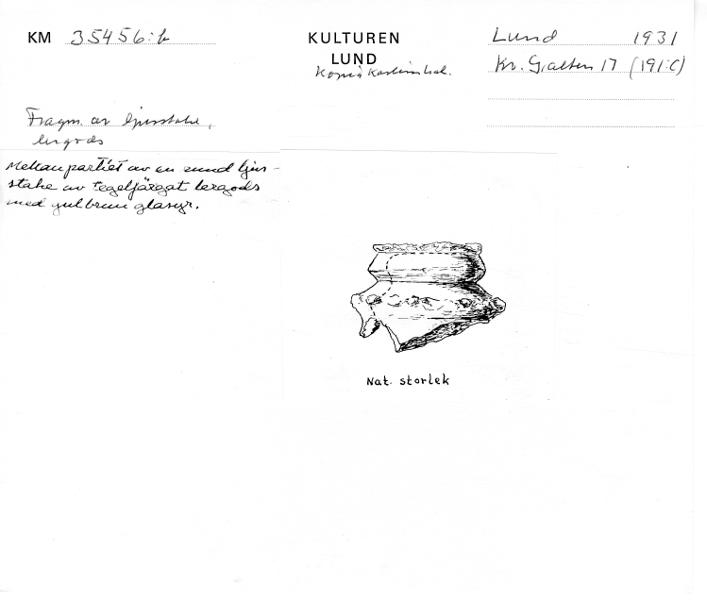 KM 35456:b
KULTUREN
LUND
Lund 1931
Kv. Gråtten 17 (191:C)
Fragm. av ljusstake,
lergods
Mellanpartiet av en rund ljus-
stake av tegelfärgat lergods
med gulbrun glasyr.
Nat. storlek